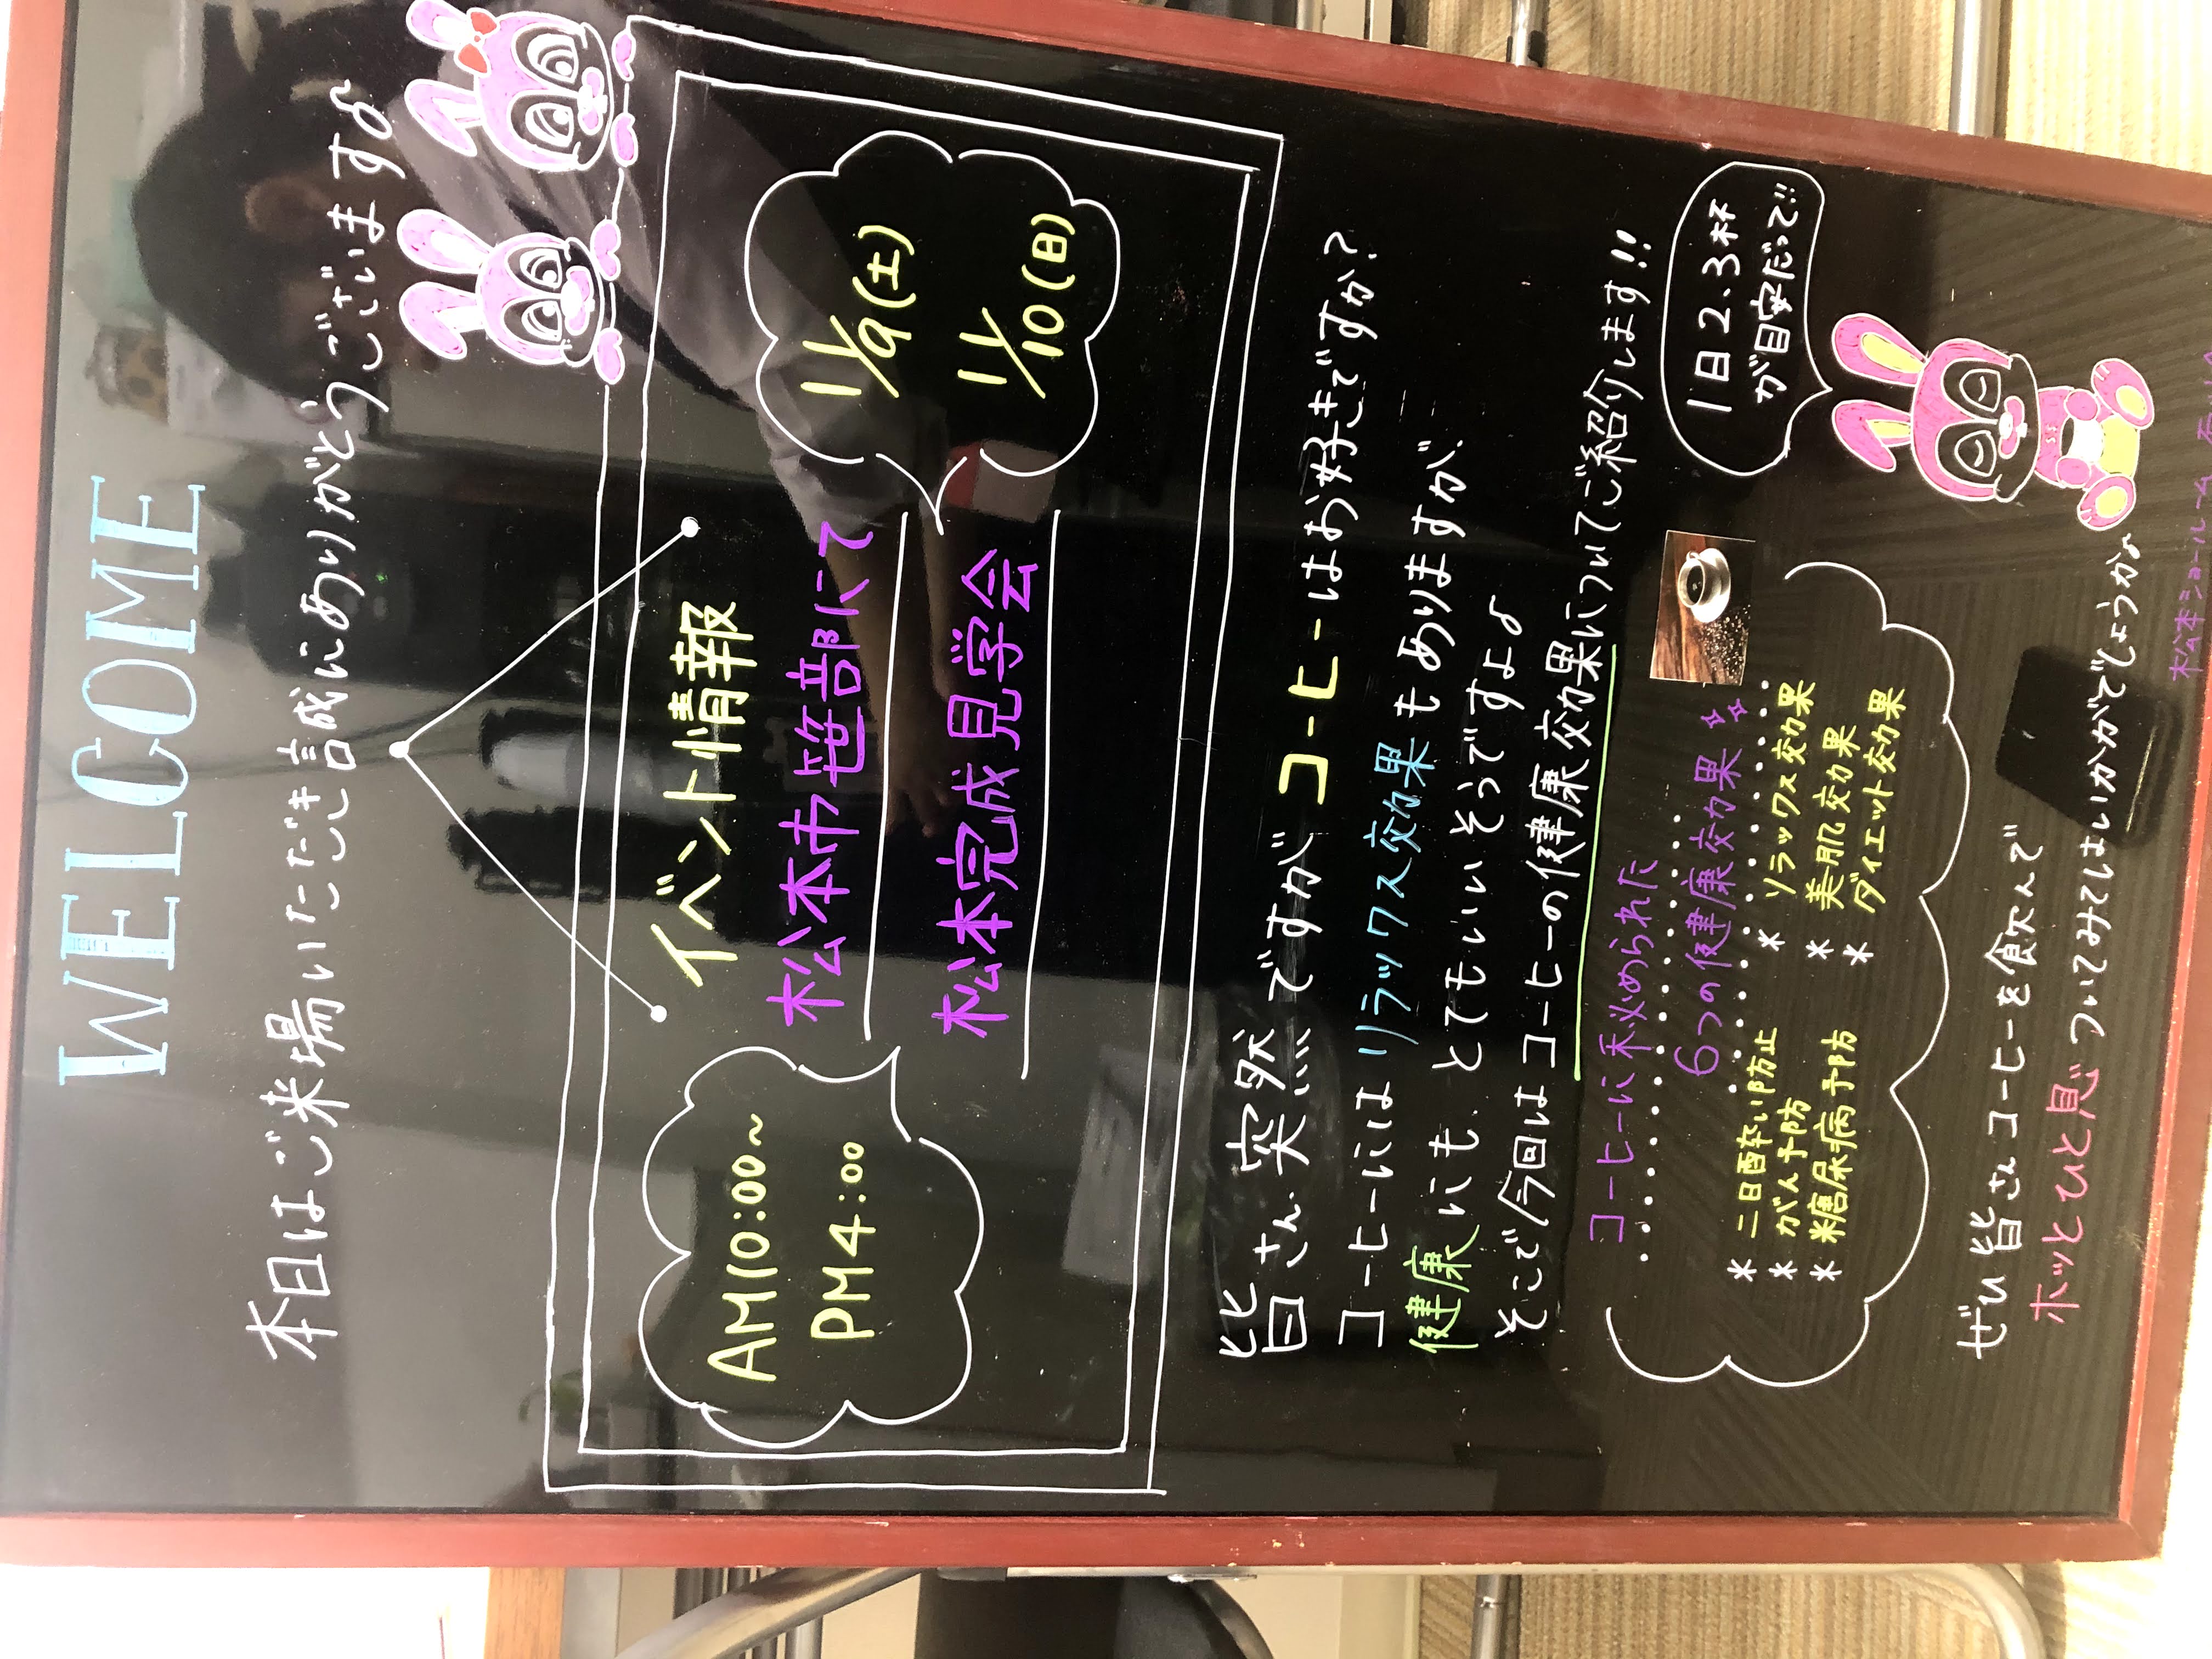 WELCOME
本日はご来場いただき誠にありがとうございます♪
イベント情報
松本市笹部にて
松本完成見学会
AM10:00~
PM4:00
11/9(土)
11/10(日)
皆さん突然ですがコーヒーはお好きですか?
コーヒーにはリラックス効果もありますが、
健康にも、とてもいいそうですよ♪
そこで今回はコーヒーの健康効果についてご紹介します!!
コーヒーに秘められた
6つの健康効果
* 二日酔い防止
* がん予防
* 糖尿病予防
* リラックス効果
* 美肌効果
* ダイエット効果
1日2.3杯
が目安だって!!
ぜひ皆さんコーヒーを飲んで
ホッとひと息ついてみてはいかがでしょうか♪
松本ショールーム